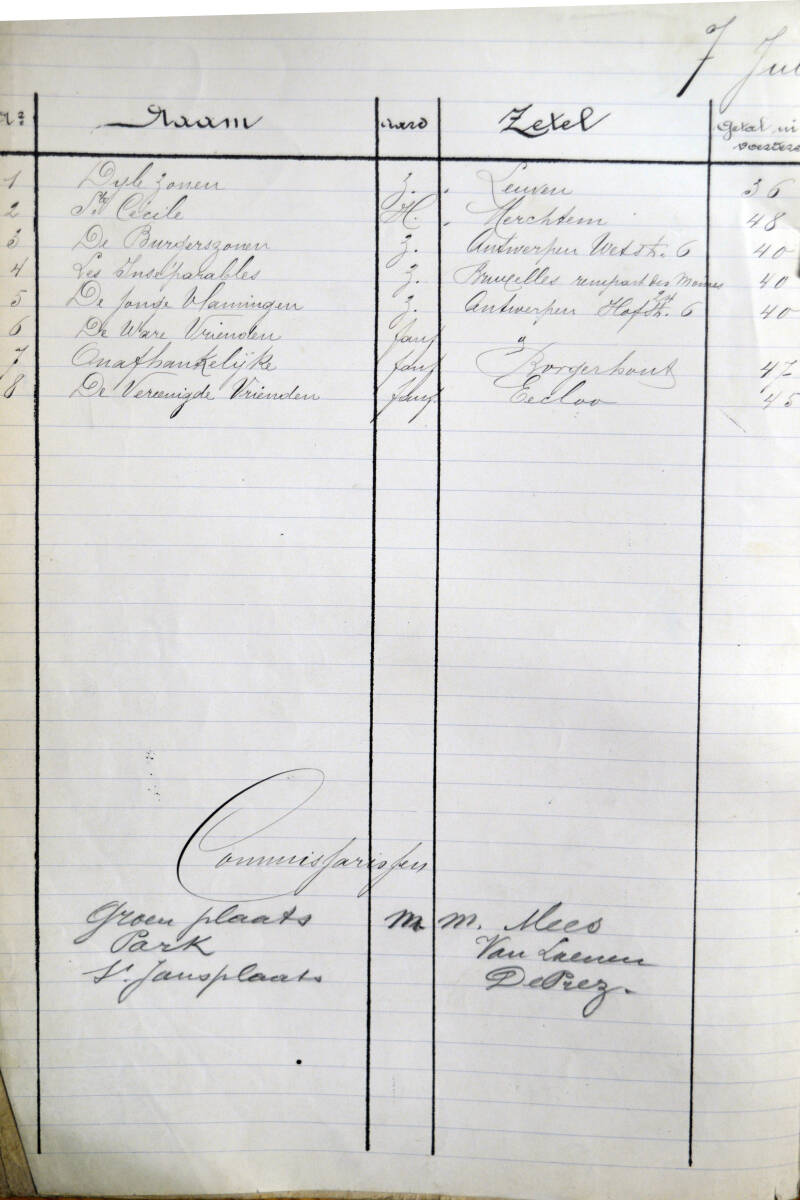 7 Jul
Nr Naam aard Zetel Getal uit
voerders
1 Dyle zonen Z. Leuven 36
2 Ste Cécile H. Merchtem 48
3 De Burgerszonen Z. Antwerpen Wetstr. 6 40
4 Les Inséparables Z. Bruxelles rempart des Moines 40
5 De Jonge Vlamingen Z. Antwerpen Hofstr. 6 40
6 De Ware Vrienden fanf "
7 Onafhankelijke fanf Borgerhout 47
8 De Vereenigde Vrienden fanf. Eecloo 45
Commissarissen
Groen plaats M M. Mees
Park Van Laenen
St Jansplaats De Prez.